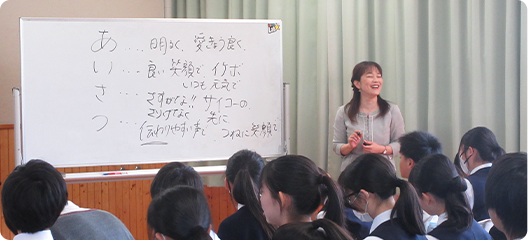 あ…明るく、愛きょう良く、
い…良い笑顔で、イケボ
いつも元気で
さ…さすがな!! サイコーの
さりげなく 先に
つ…伝わりやすい声で つねに笑顔で